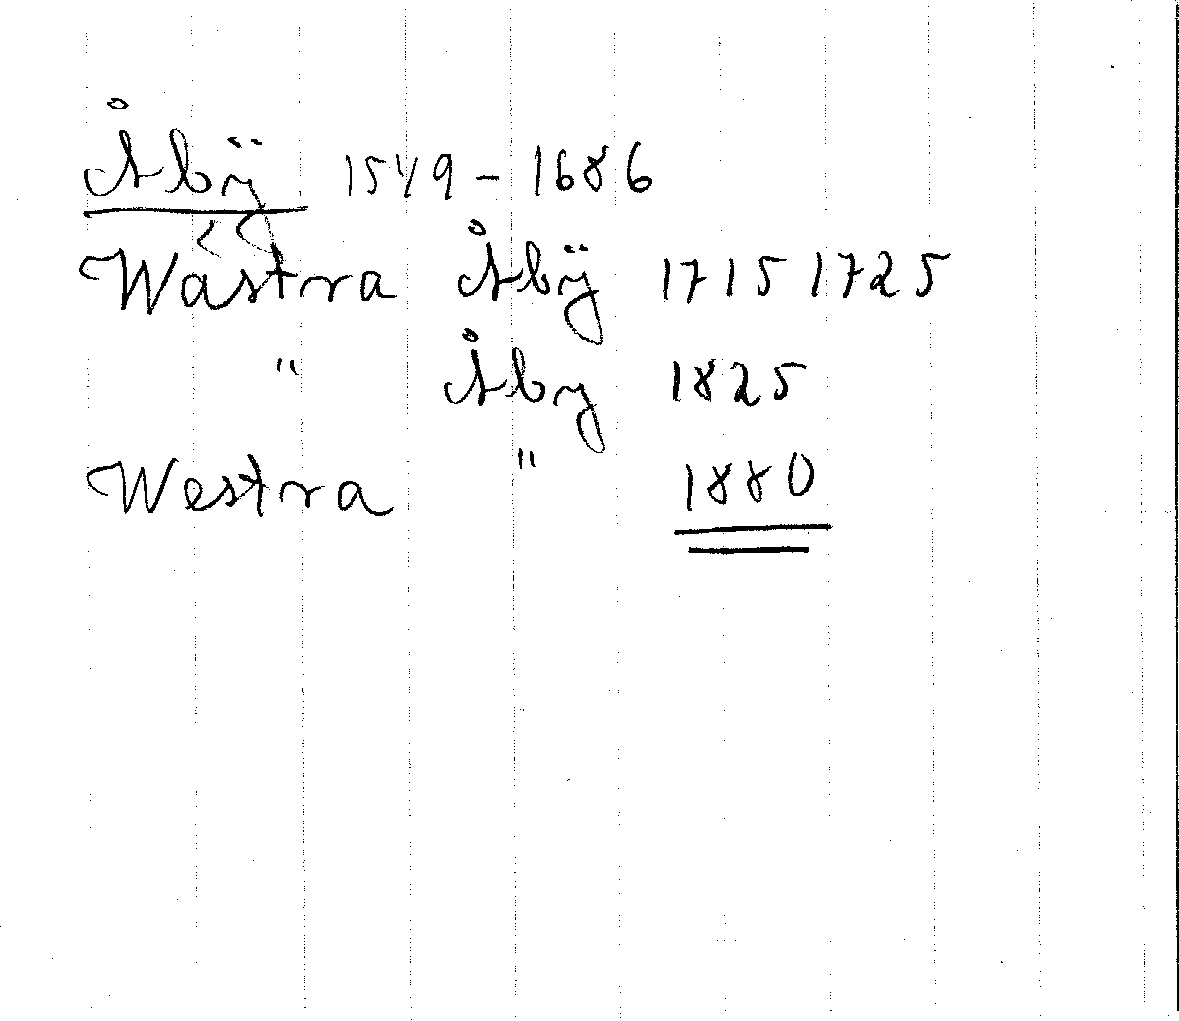 Åbÿ 1549 - 1686
Wästra Åbÿ 1715 1725
" Åby 1825
Westra " 1880